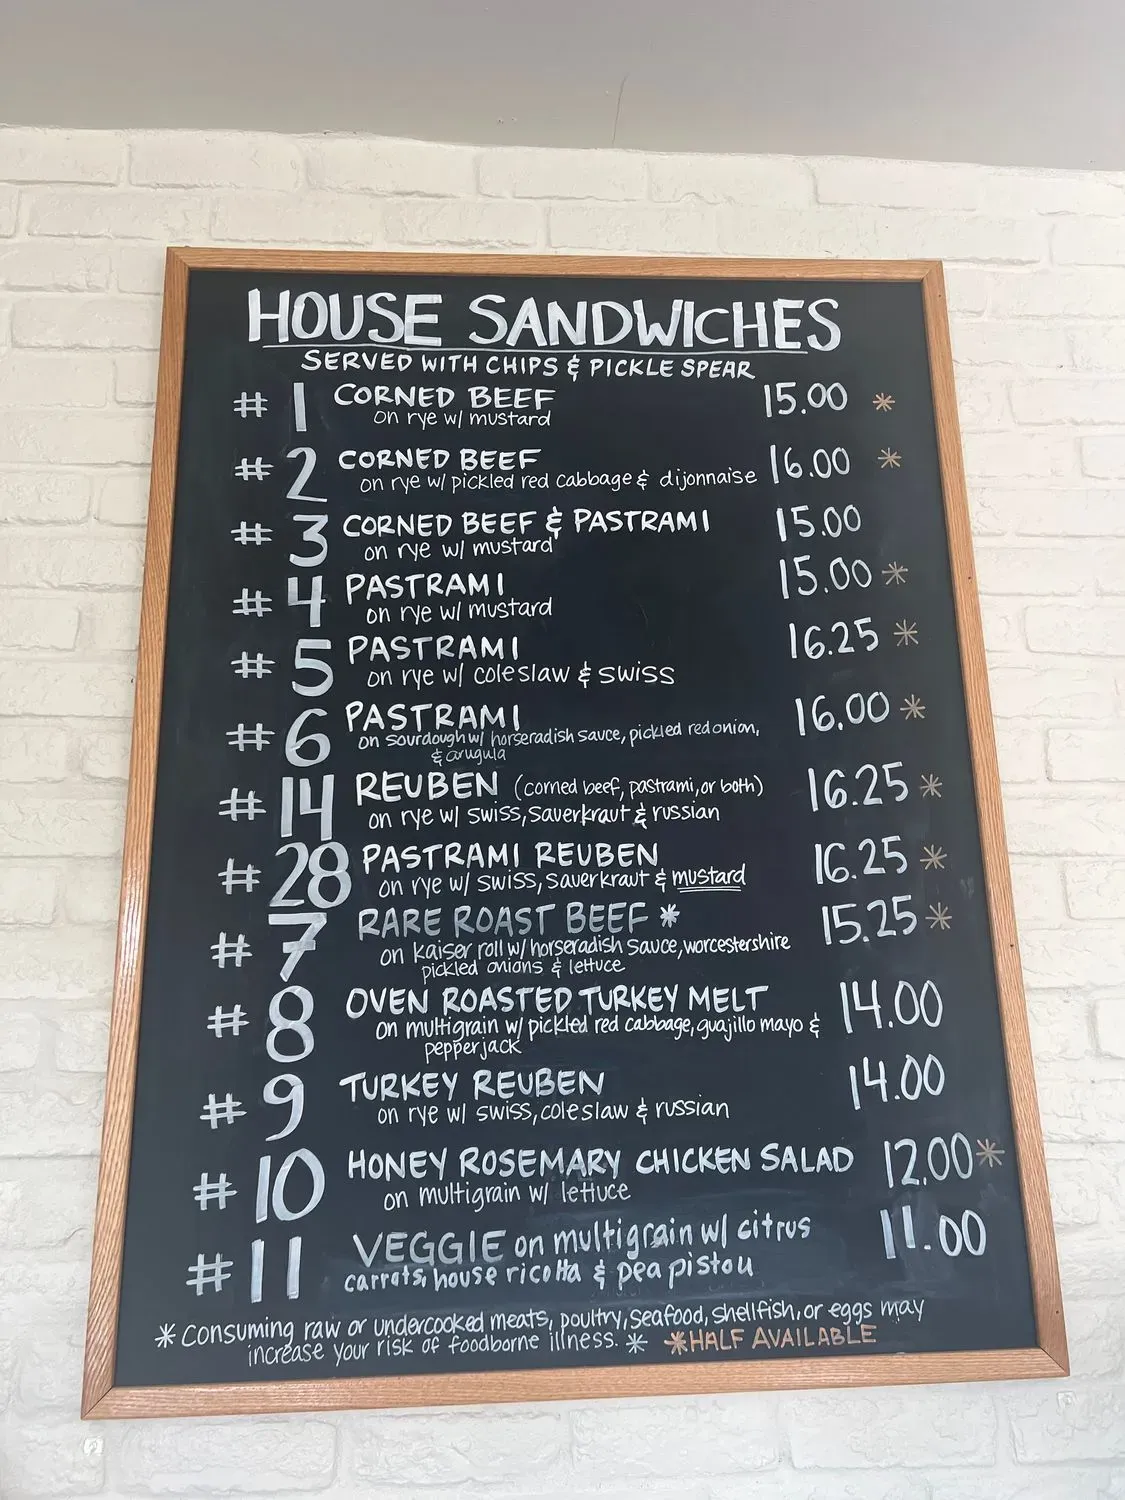 HOUSE SANDWICHES
SERVED WITH CHIPS & PICKLE SPEAR
# 1 CORNED BEEF 15.00 *
on rye w/ mustard
# 2 CORNED BEEF 16.00 *
on rye w/ pickled red cabbage & dijonnaise
# 3 CORNED BEEF & PASTRAMI 15.00
on rye w/ mustard
# 4 PASTRAMI 15.00 *
on rye w/ mustard
# 5 PASTRAMI 16.25 *
on rye w/ coleslaw & swiss
# 6 PASTRAMI 16.00 *
on sourdough w/ horseradish sauce, pickled red onion,
& arugula
# 14 REUBEN (corned beef, pastrami, or both) 16.25 *
on rye w/ swiss, sauerkraut & russian
# 28 PASTRAMI REUBEN 16.25 *
on rye w/ swiss, sauerkraut & mustard
# 7 RARE ROAST BEEF * 15.25 *
on kaiser roll w/ horseradish sauce, worcestershire
pickled onions & lettuce
# 8 OVEN ROASTED TURKEY MELT 14.00
on multigrain w/ pickled red cabbage, guajillo mayo &
pepperjack
# 9 TURKEY REUBEN 14.00
on rye w/ swiss, coleslaw & russian
# 10 HONEY ROSEMARY CHICKEN SALAD 12.00 *
on multigrain w/ lettuce
# 11 VEGGIE on multigrain w/ citrus 11.00
carrots, house ricotta & pea pistou
* Consuming raw or undercooked meats, poultry, seafood, shellfish, or eggs may
increase your risk of foodborne illness. * *HALF AVAILABLE